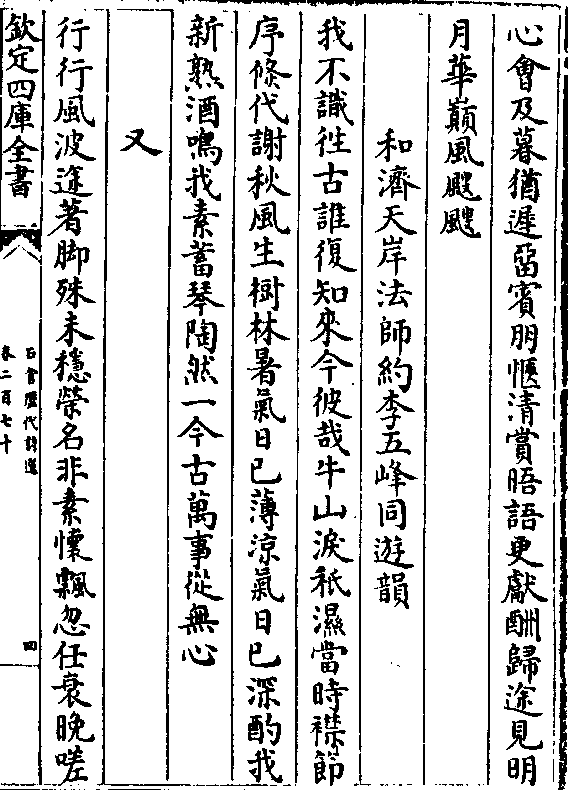 心會及暮猶遲留賓朋愜清賞晤語更獻酬歸途見明
月華巔風颼颼
和濟天岸法師約李五峰同遊韻
我不識徃古誰復知來今彼哉牛山淚秖濕當時襟節
序倏代謝秋風生樹林暑氣日已薄涼氣日已深酌我
新熟酒鳴我素蓄琴陶然一今古萬事從無心
又
行行風波途著脚殊未穩榮名非素懷飄忽任衰晚嗟
欽定四庫全書
石倉歷代詩選
卷二百七十
四